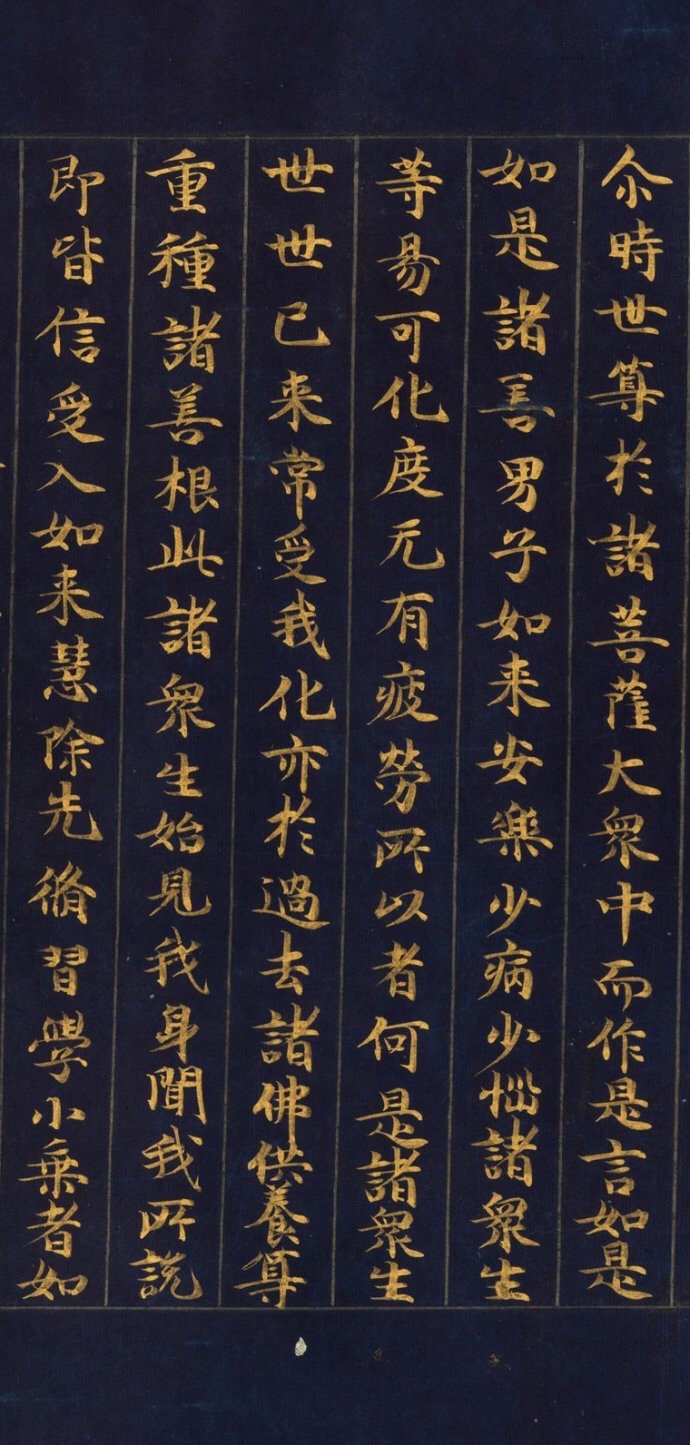 尒時世尊於諸菩薩大衆中而作是言如是
如是諸善男子如来安樂少病少惱諸衆生
等易可化度无有疲勞所以者何是諸衆生
世世已来常受我化亦於過去諸佛供養尊
重種諸善根此諸衆生始見我身聞我所説
即皆信受入如来慧除先脩習學小乗者如